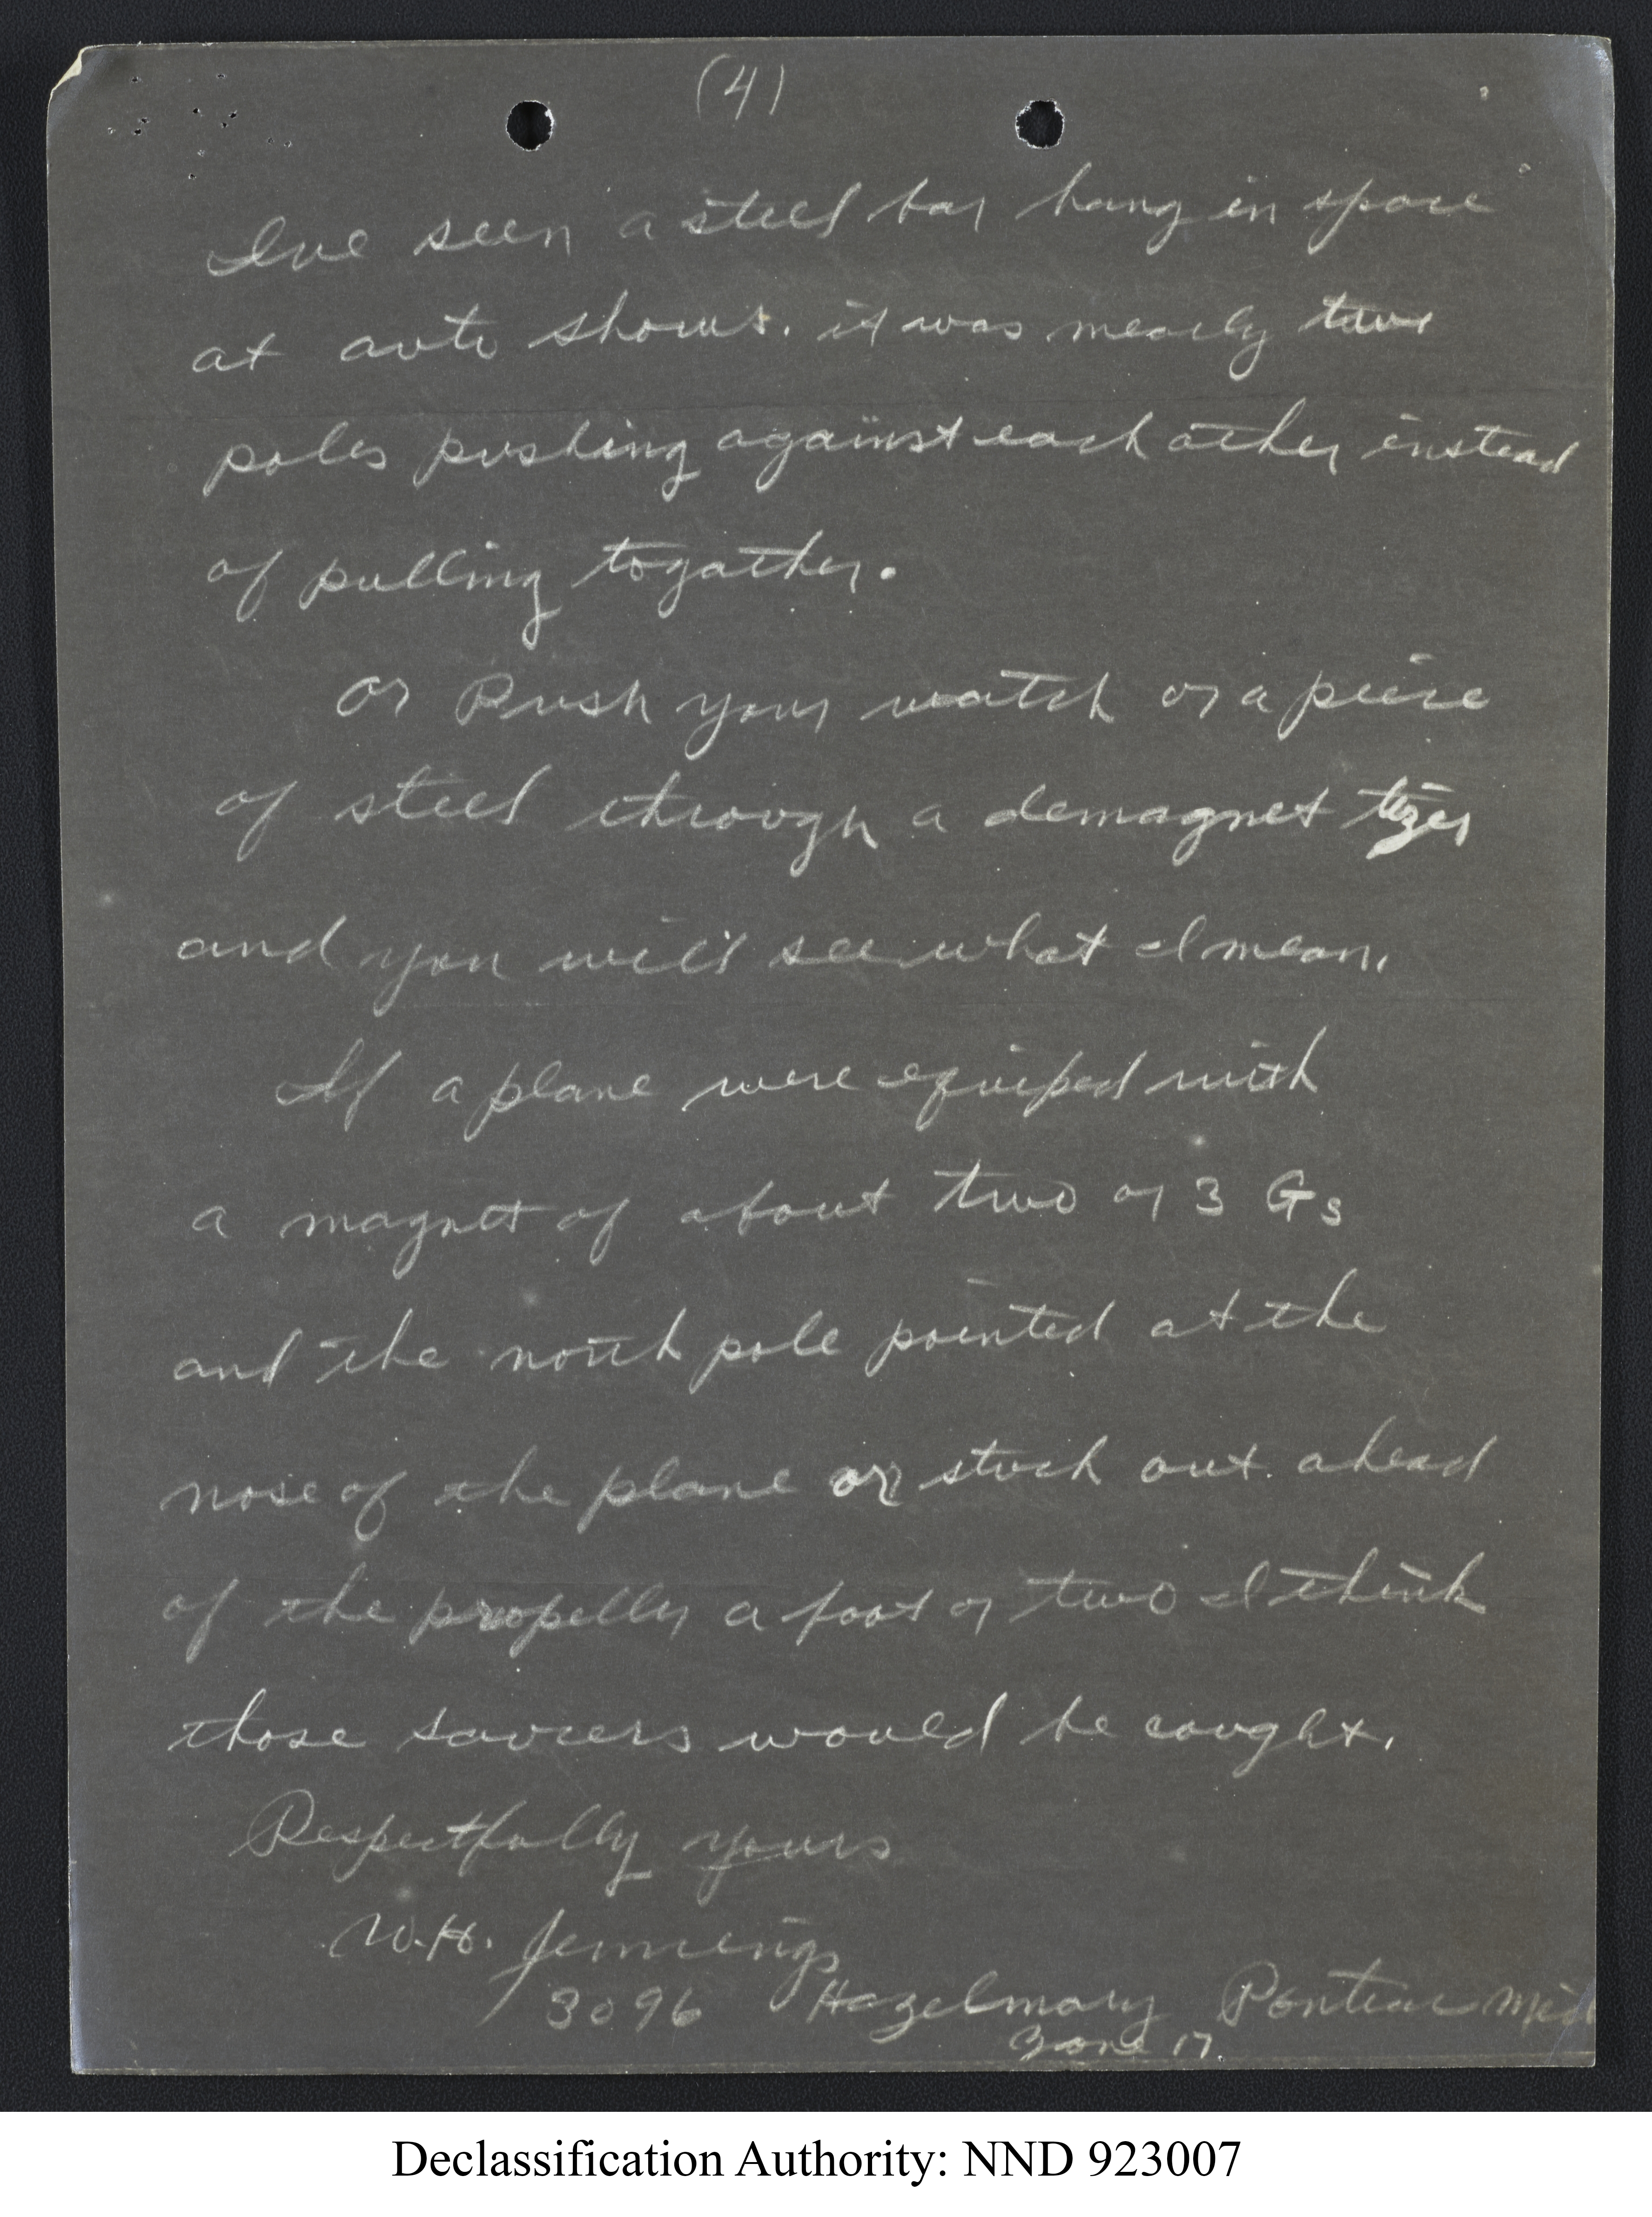 (4)
Ive seen a steel bar hang in space
at auto shows. it was mearly two
poles pushing against each other instead
of pulling togather.
or Push your watch or a piece
of steel through a demagnet tizer
and you will see what I mean.
If a plane were equiped with
a magnet of about two or 3 Gs
and the north pole pointed at the
nose of the plane or stuck out ahead
of the propeller a foot or two I think
those saucers would be caught.
Respectfully yours
W.H. Jennings
3096 Hazelmary Pontiac Mich
Zone 17.
Declassification Authority: NND 923007